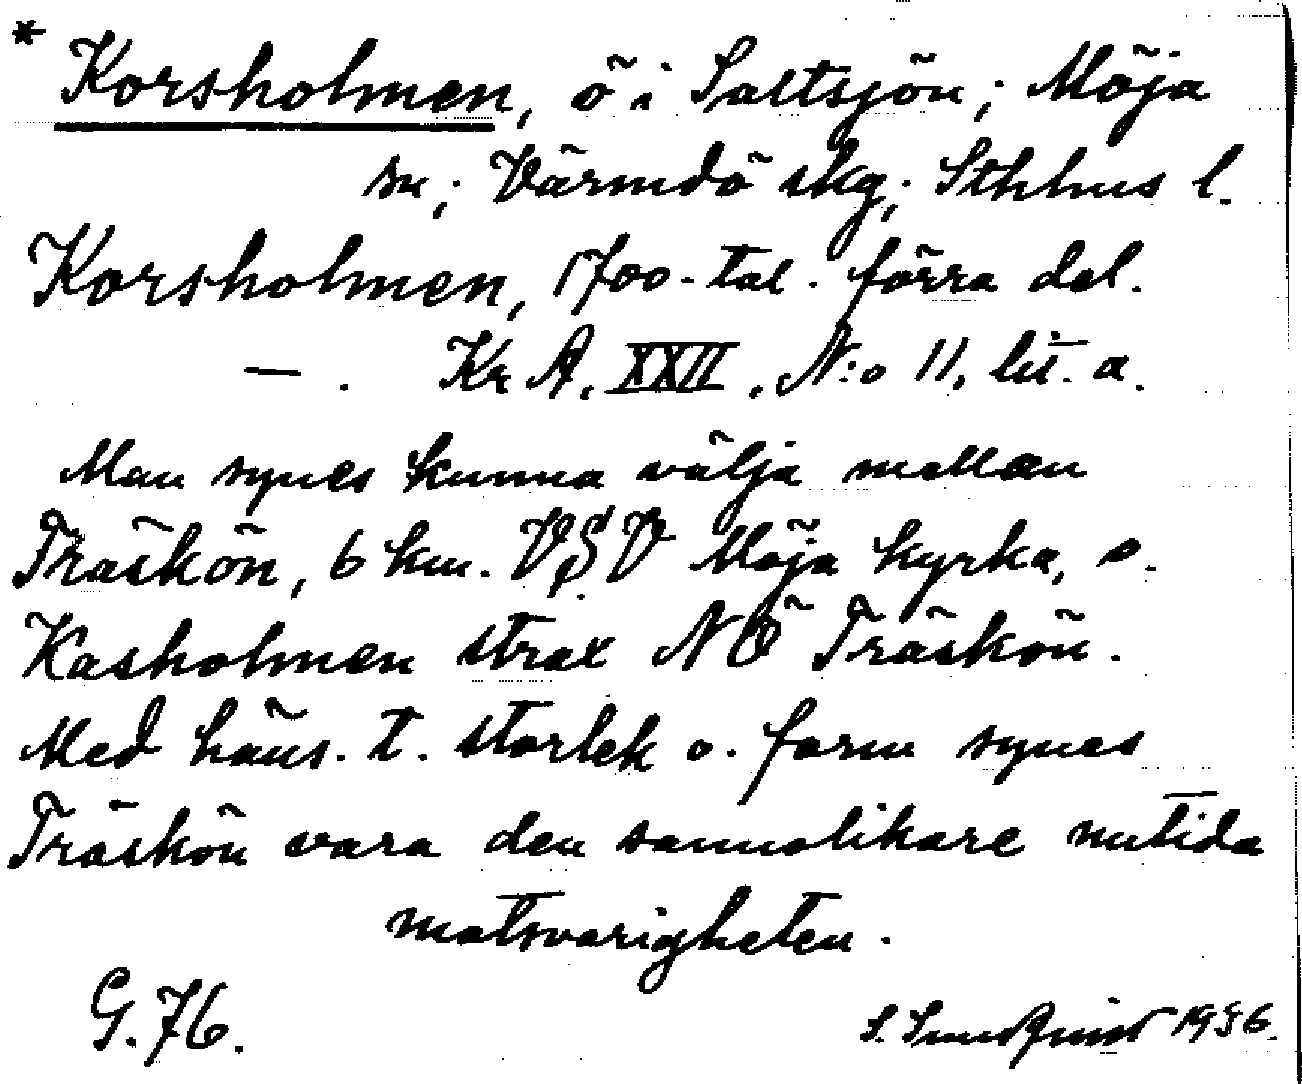 * Korsholmen, ö i Saltsjön; Möja
sn; Värmdö skg; Sthlms l.
Korsholmen, 1700-tal. förra del.
— . Kr A. XXII, N:o 11, lit. a.
Man synes kunna välja mellan
Träskön, 6 km. VSV Möja kyrka, o.
Kasholmen strax NÖ Träskön.
Med häns. t. storlek o. form synes
Träskön vara den sannolikare nutida
motsvarigheten.
G. 76. S. Sundqvist 1936.